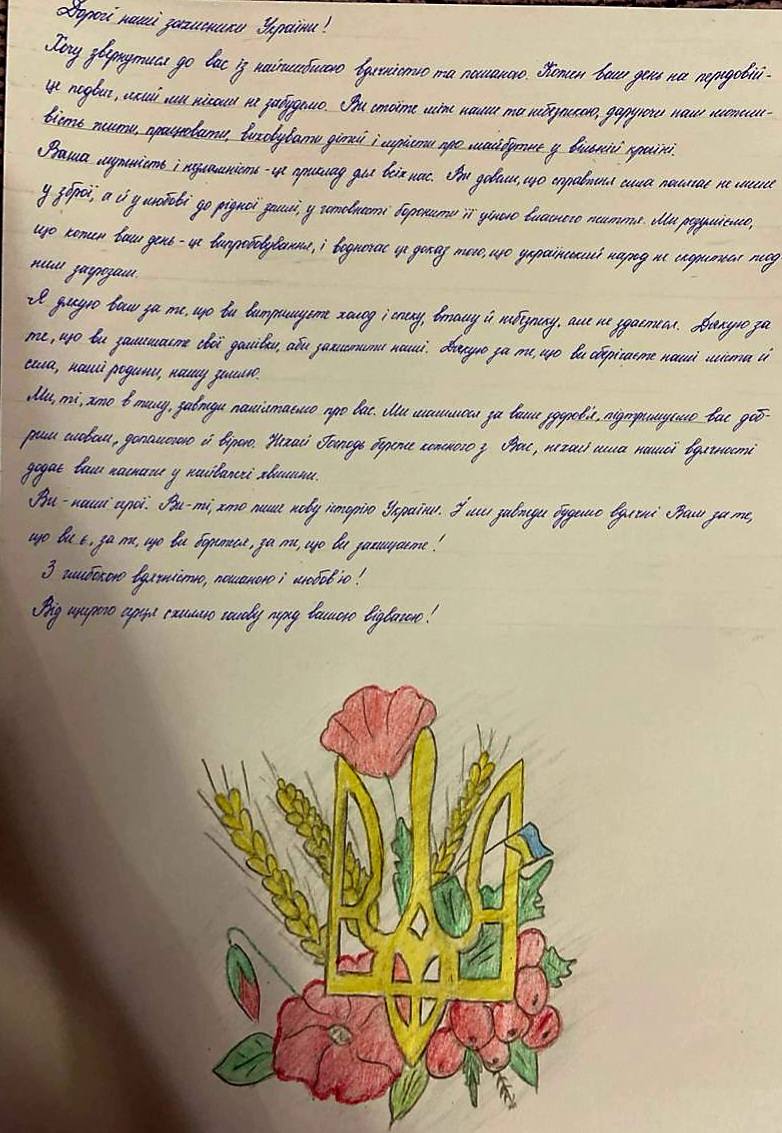 Дорогі наші захисники України!
Хочу звернутися до вас із найглибшою вдячністю та пошаною. Кожен ваш день на передовій -
це подвиг, який ми ніколи не забудемо. Ви стоїте між нами та небезпекою, даруючи нам можли-
вість жити, працювати, виховувати дітей і мріяти про майбутнє у вільній країні.
Ваша мужність і незламність - це приклад для всіх нас. Ви довели, що справжня сила полягає не лише
у зброї, а й у любові до рідної землі, у готовності боронити її ціною власного життя. Ми розуміємо,
що кожен ваш день - це випробовування, і водночас це доказ того, що український народ не скориться жод
ним загрозам.
Я дякую вам за те, що ви витримуєте холод і спеку, втому й небезпеку, але не здаєтеся. Дякую за
те, що ви залишаєте свої домівки, аби захистити наші. Дякую за те, що ви оберігаєте наші міста й
села, наші родини, нашу землю.
Ми, ті, хто в тилу, завжди пам'ятаємо про вас. Ми молимося за ваше здоров'я, підтримуємо вас доб-
рим словом, допомогою й вірою. Нехай Господь береже кожного з Вас, нехай сила нашої вдячності
додає вам наснаги у найважчі хвилини.
Ви - наші герої. Ви - ті, хто пише нову історію України. І ми завжди будемо вдячні Вам за те,
що ви є, за те, що ви боретеся, за те, що ви захищаєте!
З глибокою вдячністю, пошаною і любов'ю!
Від щирого серця схиляю голову перед вашою відвагою!